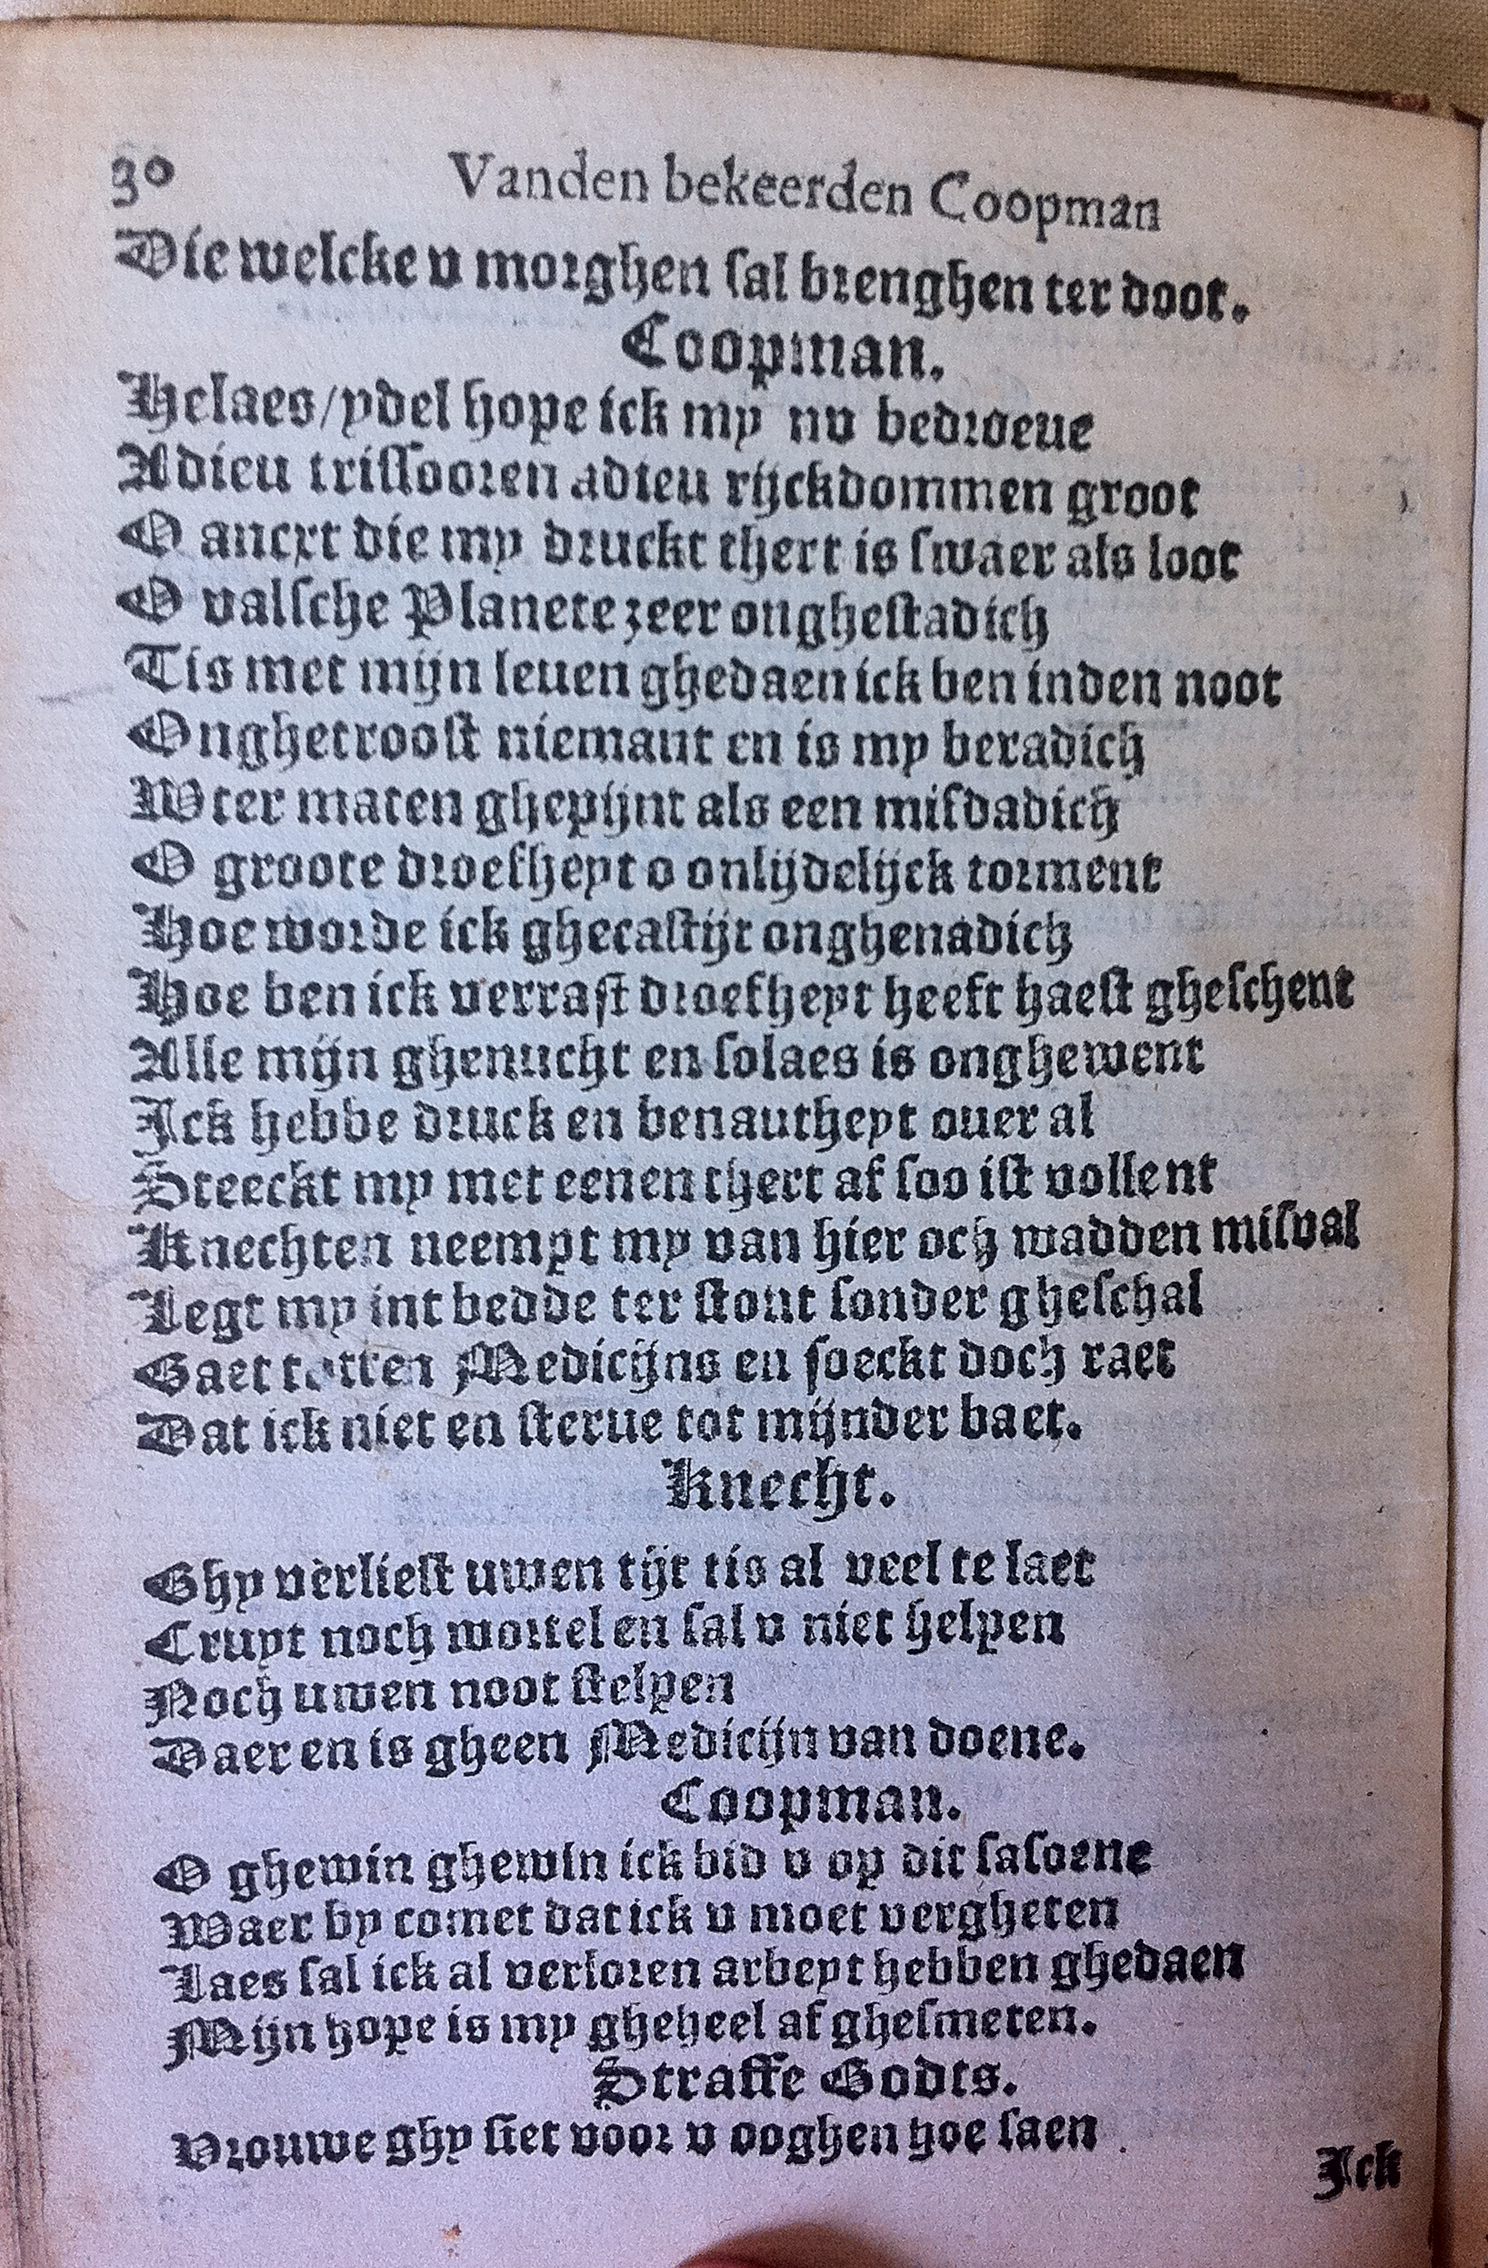 30 Vanden bekeerden Coopman
Die welcke v morghen sal brenghen ter doot.
Coopman.
Helaes/ydel hope ick my nv bedroeue
Adieu trissooren adieu rijckdommen groot
O ancxt die my druckt thert is swaer als loot
O valsche Planete zeer onghestadich
Tis met mijn leuen ghedaen ick ben inden noot
Onghetroost niemant en is my beradich
Wter maten ghepijnt als een misdadich
O groote droefheyt o onlijdelijck torment
Hoe worde ick ghecastijt onghenadich
Hoe ben ick verrast droefheyt heeft haest gheschent
Alle mijn ghenucht en solaes is onghewent
Ick hebbe druck en benautheyt ouer al
Steeckt my met eenen thert af soo ist vollent
Knechten neempt my van hier och wadden misval
Legt my int bedde ter stont sonder gheschal
Gaet totten Medicijns en soeckt doch raet
Dat ick niet en sterue tot mijnder baet.
Knecht.
Ghy verliest uwen tijt tis al veel te laet
Cruyt noch wortel en sal v niet helpen
Noch uwen noot stelpen
Daer en is gheen Medicijn van doene.
Coopman.
O ghewin ghewin ick bid v op dit sasoene
Waer by comet dat ick v moet vergheten
Laes sal ick al verloren arbeyt hebben ghedaen
Mijn hope is my gheheel af ghesmeten.
Straffe Godts.
Vrouwe ghy siet voor v ooghen hoe saen
Ick